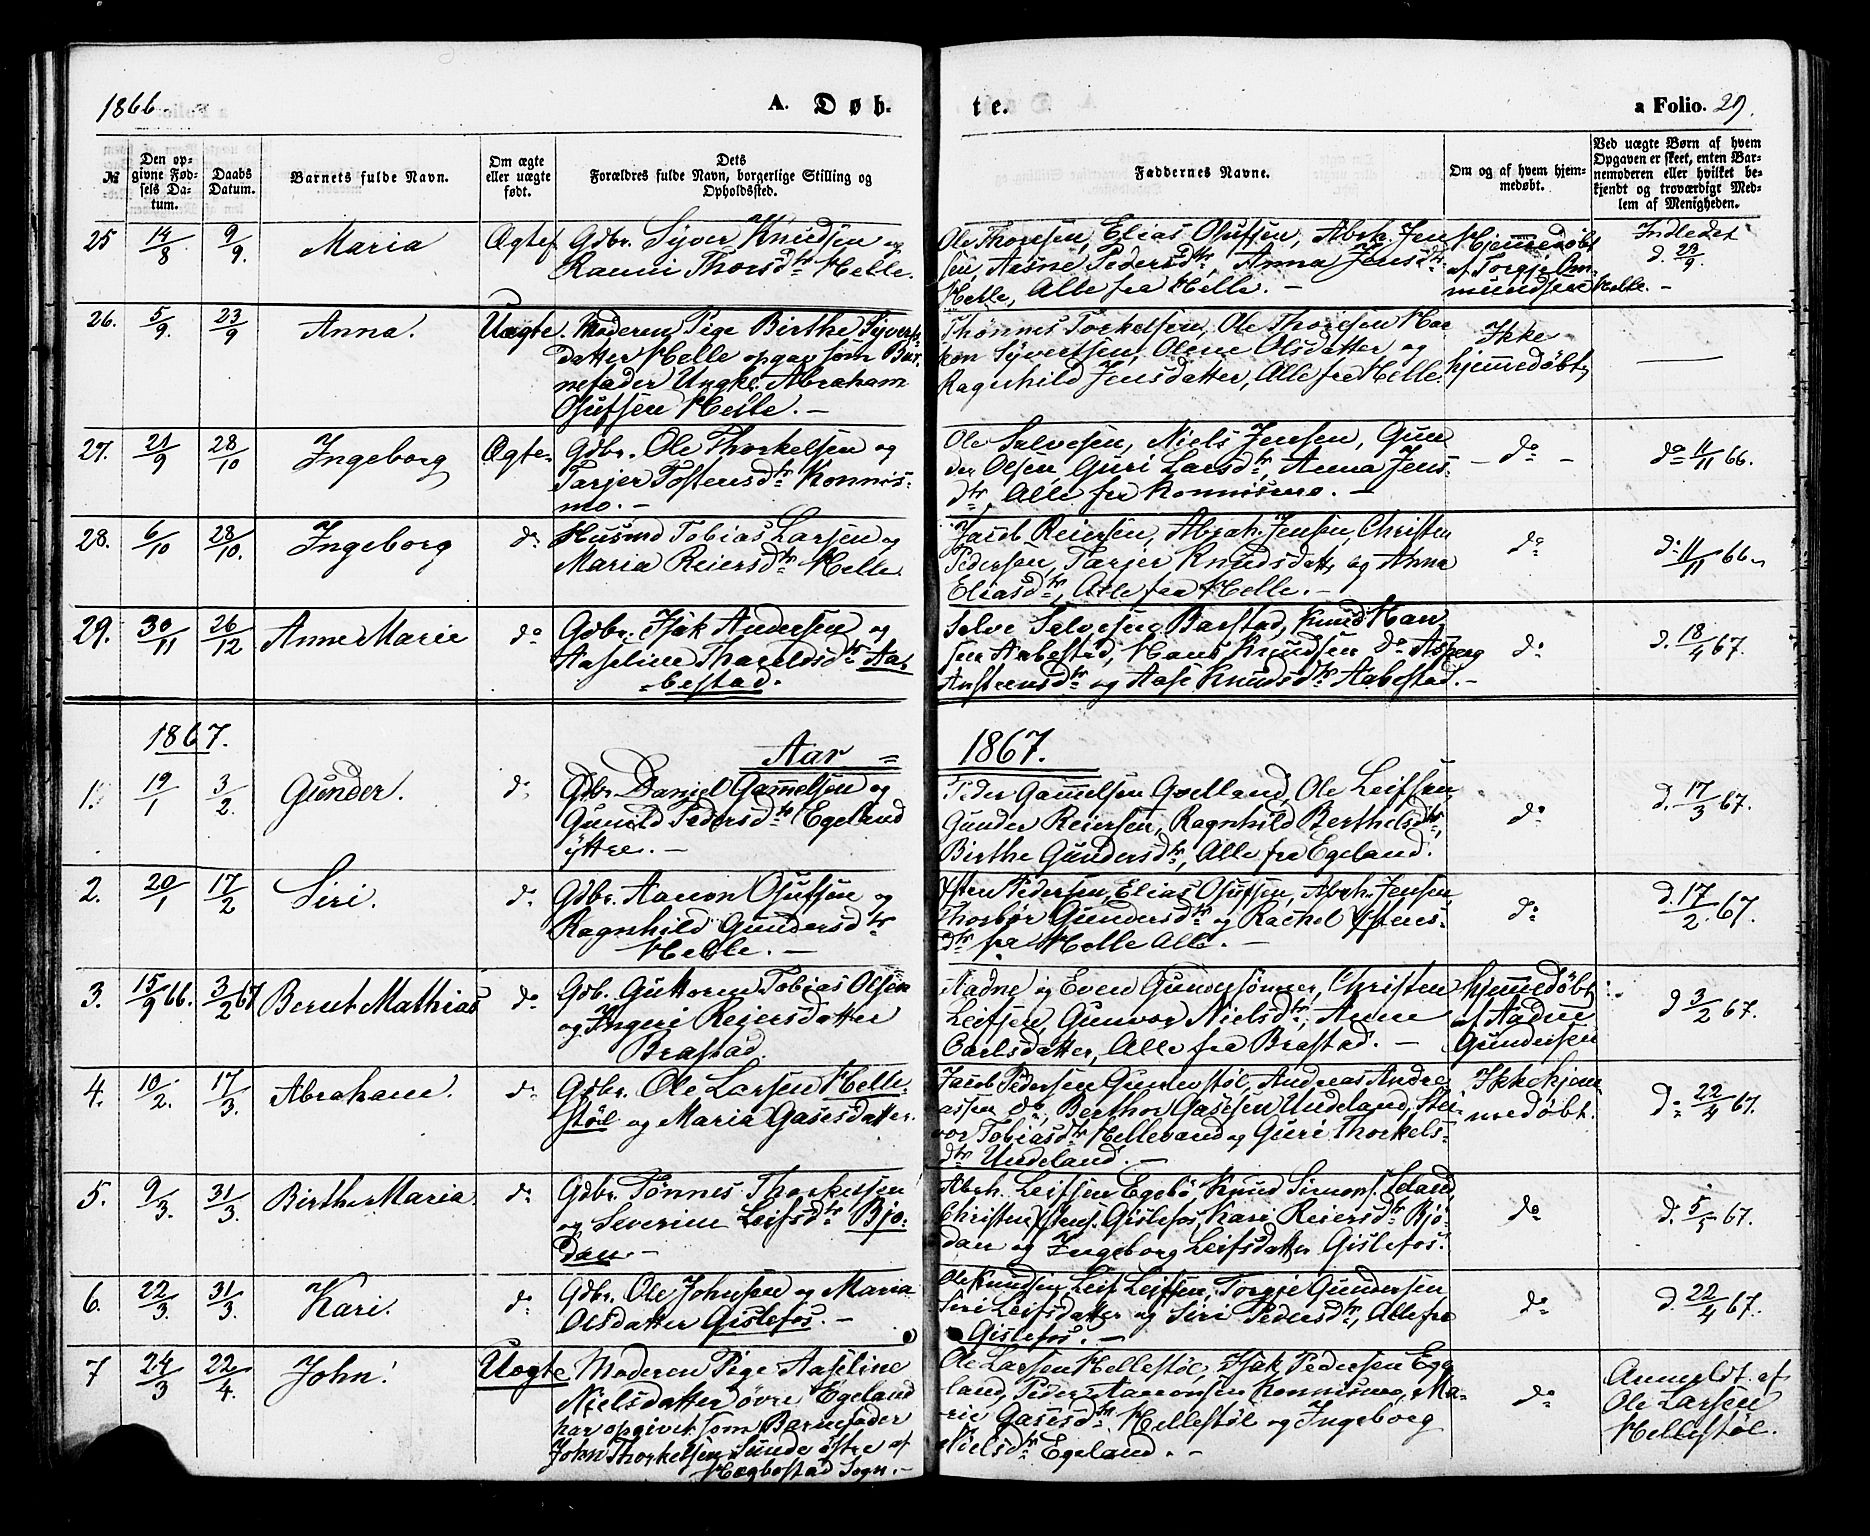 1866. A. Døb.
№
Den opgivne Fødsels Datum.
Daabs Datum.
Barnets fulde Navn.
Om ægte eller uægte født.
Dets
Forældres fulde Navn, borgerlige Stilling og
Opholdssted.
25 14/8 9/9. Maria Ægtef. Gdbr. Syver Knudsen og
Ranni Thorsdtr Helle.
26. 5/9. 23/9 Anna. Uægte. Moderen Pige Birthe Syverts-
datter Helle opgav som Bar-
nefader Ungk. Abraham
Olufsen Helle. –
27. 21/9 28/10 Ingeborg Ægte. Gdbr. Ole Thorkelsen og
Tarjer Tostensdtr Konnis-
mo. –
28. 6/10 28/10. Ingeborg do Husmd Tobias Larsen og
Maria Reiersdtr Helle.
29. 30/11 26/12 Anne Marie do Gdbr. Isak Andersen og
Aaseline Tharaldsdtr Aa-
bestad.
1867. Aar =
1. 19/1 3/2. Gunder. do Gdbr. Daniel Gamelsen og
Gunild Pedersdtr Egeland
yttre. –
2. 20/1 17/2 Siri. do Gdbr. Aanon Olufsen og
Ragnhild Gundersdtr
Helle. –
3. 15/9 66. 3/2 67 Bernt Mathias do Gdb. Guttorm Tobias Olsen
og Ingeri Reiersdatter
Brastad.
4. 10/2. 17/3. Abraham. do Gdbr. Ole Larsen Helle-
støl og Maria Gasesdatter.
5. 9/3. 31/3. Birthe Maria do Gdbr. Tønnes Thorkelsen
og Severine Leifsdtr Bjo-
dan –
6. 22/3. 31/3. Kari. do Gdbr. Ole Johnsen og Maria
Olsdatter Gislefos. –
7 24/3 22/4. John. Uægte Moderen Pige Aaseline
Nielsdatter øvre Egeland
har opgivet som Barnefader
John Thorkelsen Sunde østre af
Hægbostad Sogn. –
te. a Folio. 29.
Faddernes Navne.
Om og af hvem hjemmedøbt.
Ved uægte Børn af hvem
Opgaven er skeet, enten Bar-
nemoderen eller hvilket be-
kjendt og troværdigt Med-
lem af Menigheden.
Ole Thoresen, Elias Olufsen, Abrh. Jen- Hjemmedøbt Indledet
sen, Aasne Pedersdtr, Anna Jensdtr af Torgje Om- d. 23/9.
Helle, Alle fra Helle. – mundsen Helle. –
Thønnes Torkelsen, Ole Thoresen Haa- Ikke
kon Syvertsen, Olene Olsdatter og hjemmedøbt
Ragnhild Jensdatter, Alle fra Helle.
Ole Salvesen, Niels Jensen, Gun-
der Olsen, Guri Larsdtr, Anna Jens- – do – do 11/11 66.
dtr, Alle fra Konnismo. –
Jacob Reiersen, Abrah. Jensen, Christen
Pedersen, Tarjer Knudsdatter og Anna do d. 11/11 66.
Eliasdtr, Alle fra Helle. –
Salve Salvesen Barstad, Knud Han-
sen Aabestad, Hans Knudsen do Asberg do d. 18/4 67.
Austensdtr og Aase Knudsdtr Aabestad. –
1867.
Peder Gamelsen Qvelland, Ole Leifsen,
Gunder Reiersen, Ragnhild Berthelsdtr, do d. 17/3 67.
Birthe Gundersdtr, Alle fra Egeland.
Østen Pedersen, Elias Olufsen, Abrh. Jensen,
Thorbør Gundersdtr og Rachel Østens- do d. 17/2. 67.
dtr fra Helle Alle. –
Aadne og Even Gundersønner, Christen hjemmedøbt
Leifsen, Gunvor Nielsdtr, Anne af Aadne d 3/2 67.
Carlsdatter, Alle fra Brastad. – Gundersen
Jacob Pedersen Gunnestøl, Andreas Andre- Ikke hjem-
assen do, Berthor Gasesen Undeland, Sii- medøbt. do 22/4 67.
vor Tobiasdtr Hellevand og Guri Thorkels-
dtr Undeland. –
Abrh. Leifsen Egebø, Knud Simons. Seland,
Christen Østens. Gislefos, Kari Reiersdtr Bjo- do d. 5/5 67.
dan og Ingeborg Leifsdatter Gislefos.
Ole Knudsen, Leif Leifsen, Torgje Gundersen,
Siri Leifsdatter og Siri Pedersdtr, Alle fra do d. 22/4 67.
Gislefos. –
Ole Larsen Hellestøl, Isak Pedersen Ege- Anmeldt af
land, Peder Aanonsen Konnismo, Ma- do Ole Larsen
rie Gasesdtr Hellestøl og Ingeborg Hellestøl.
Nielsdtr Egeland. –